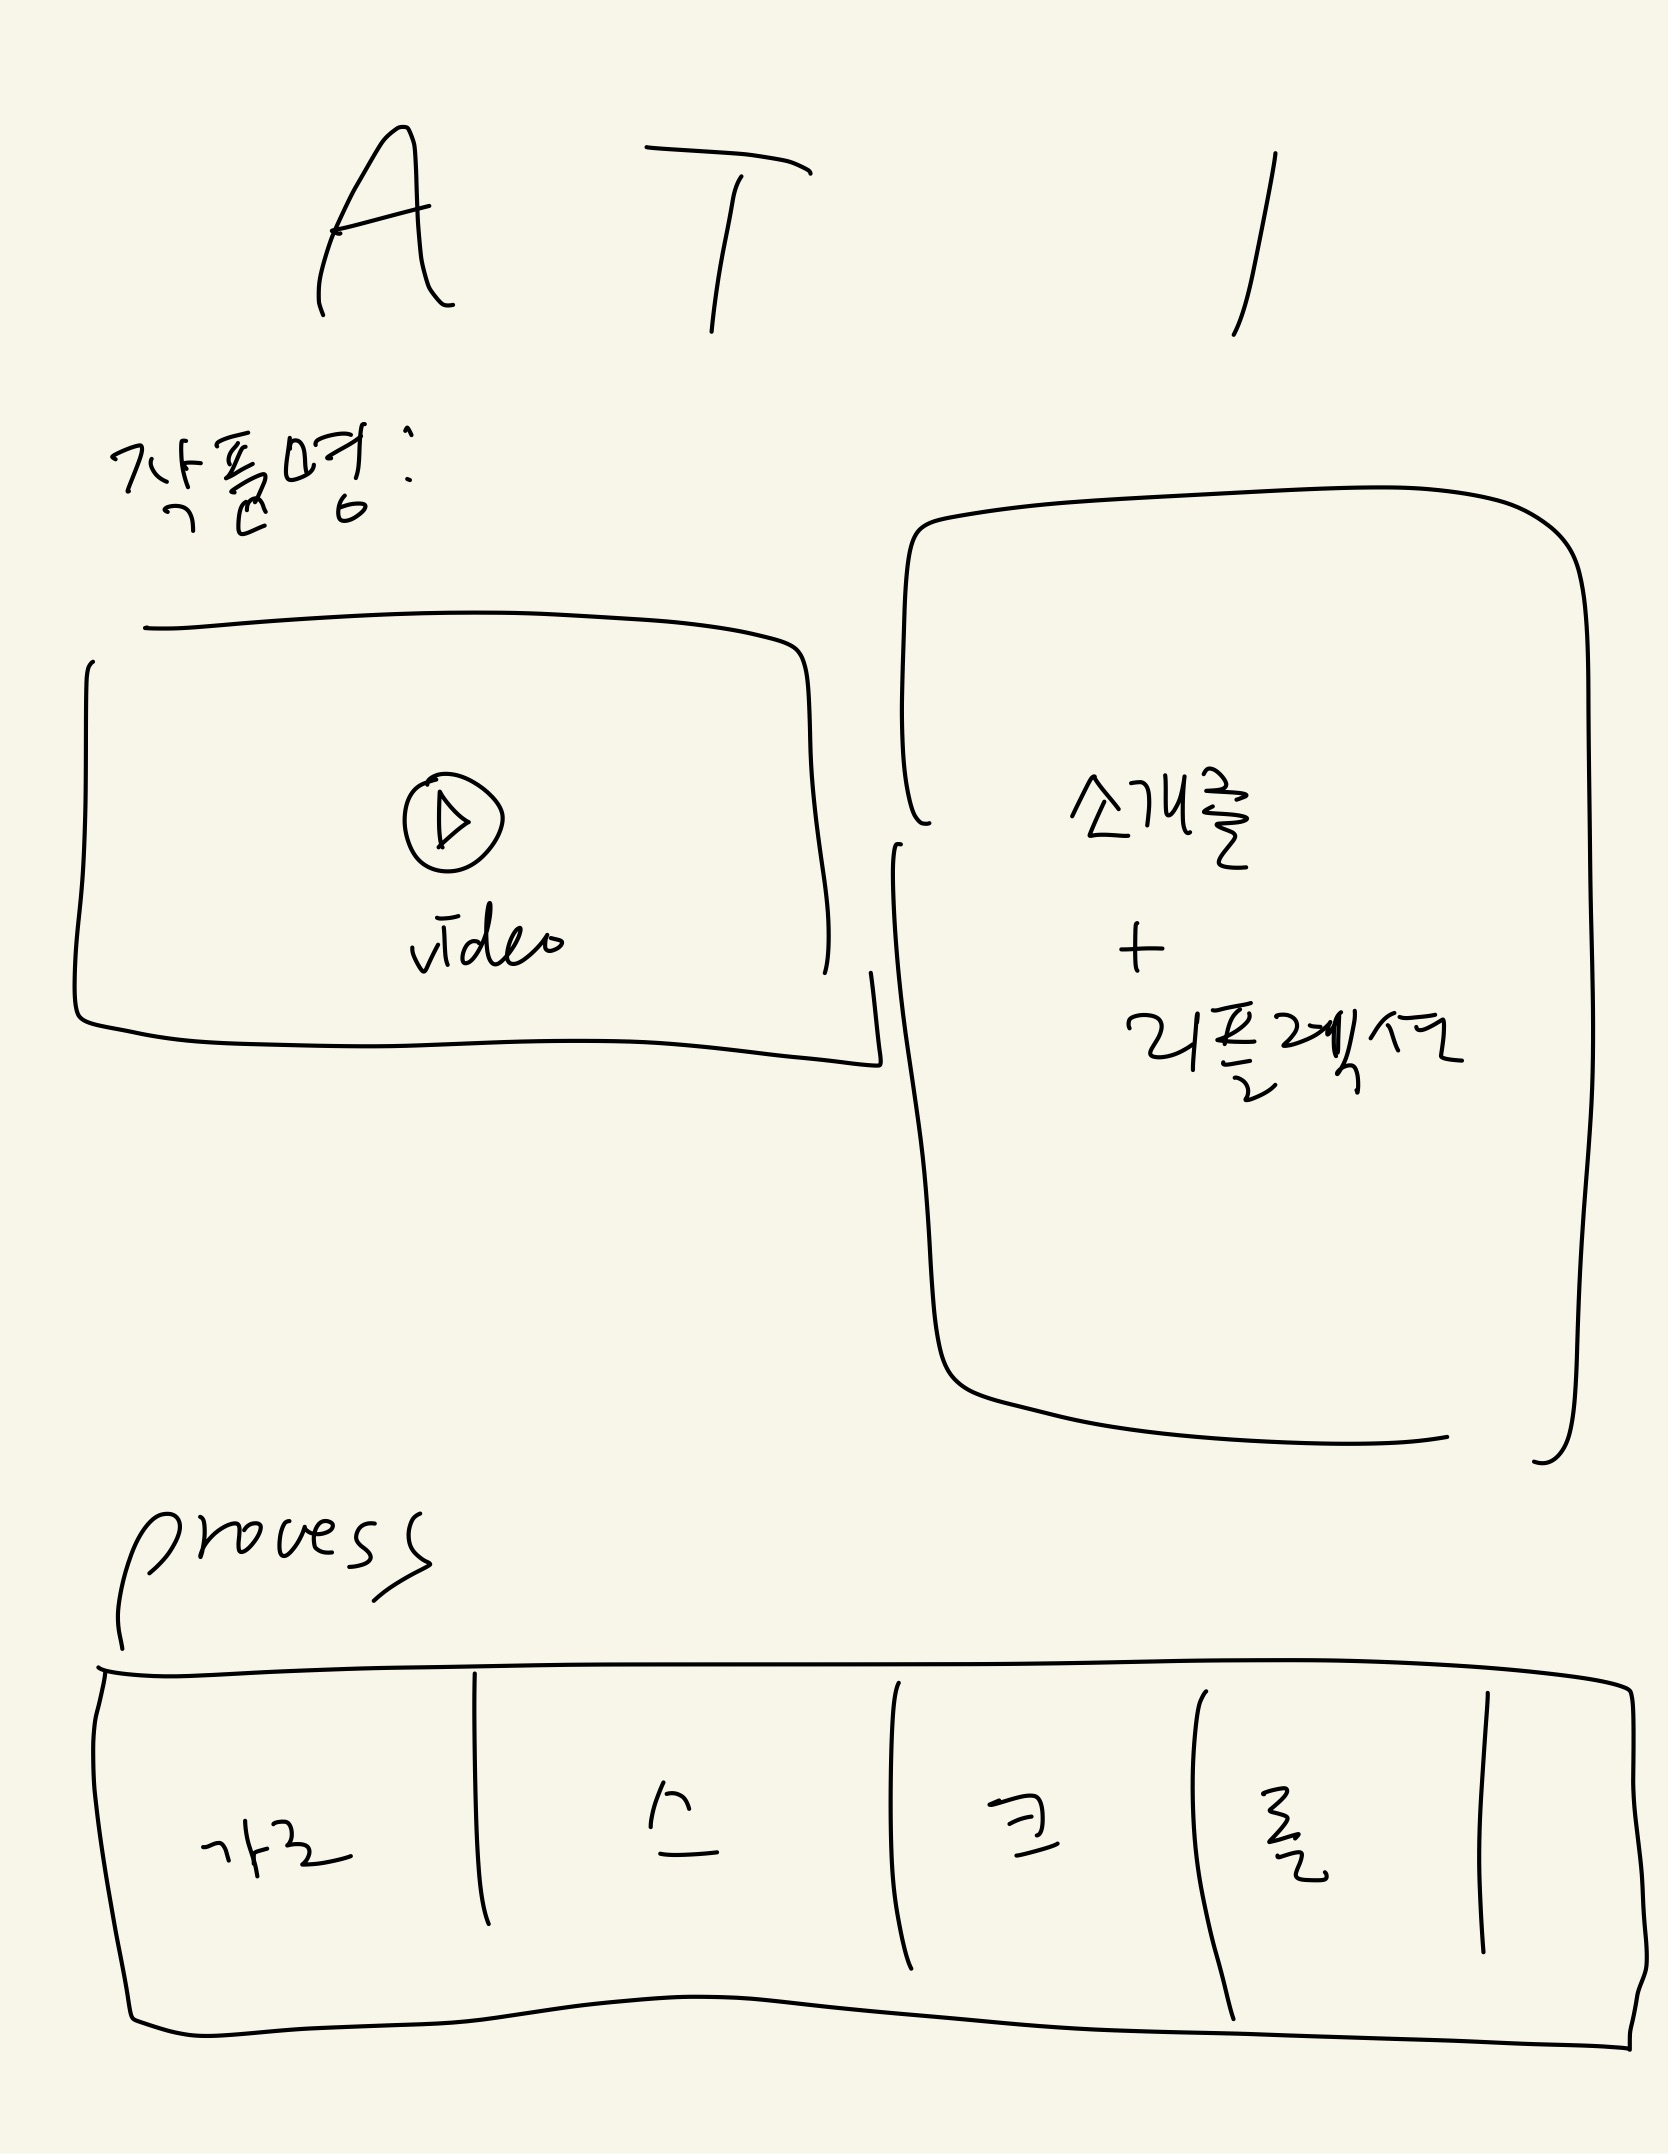 A T I
작품명:
video
소개글
+
리플렉션
process
가로
스
크
롤